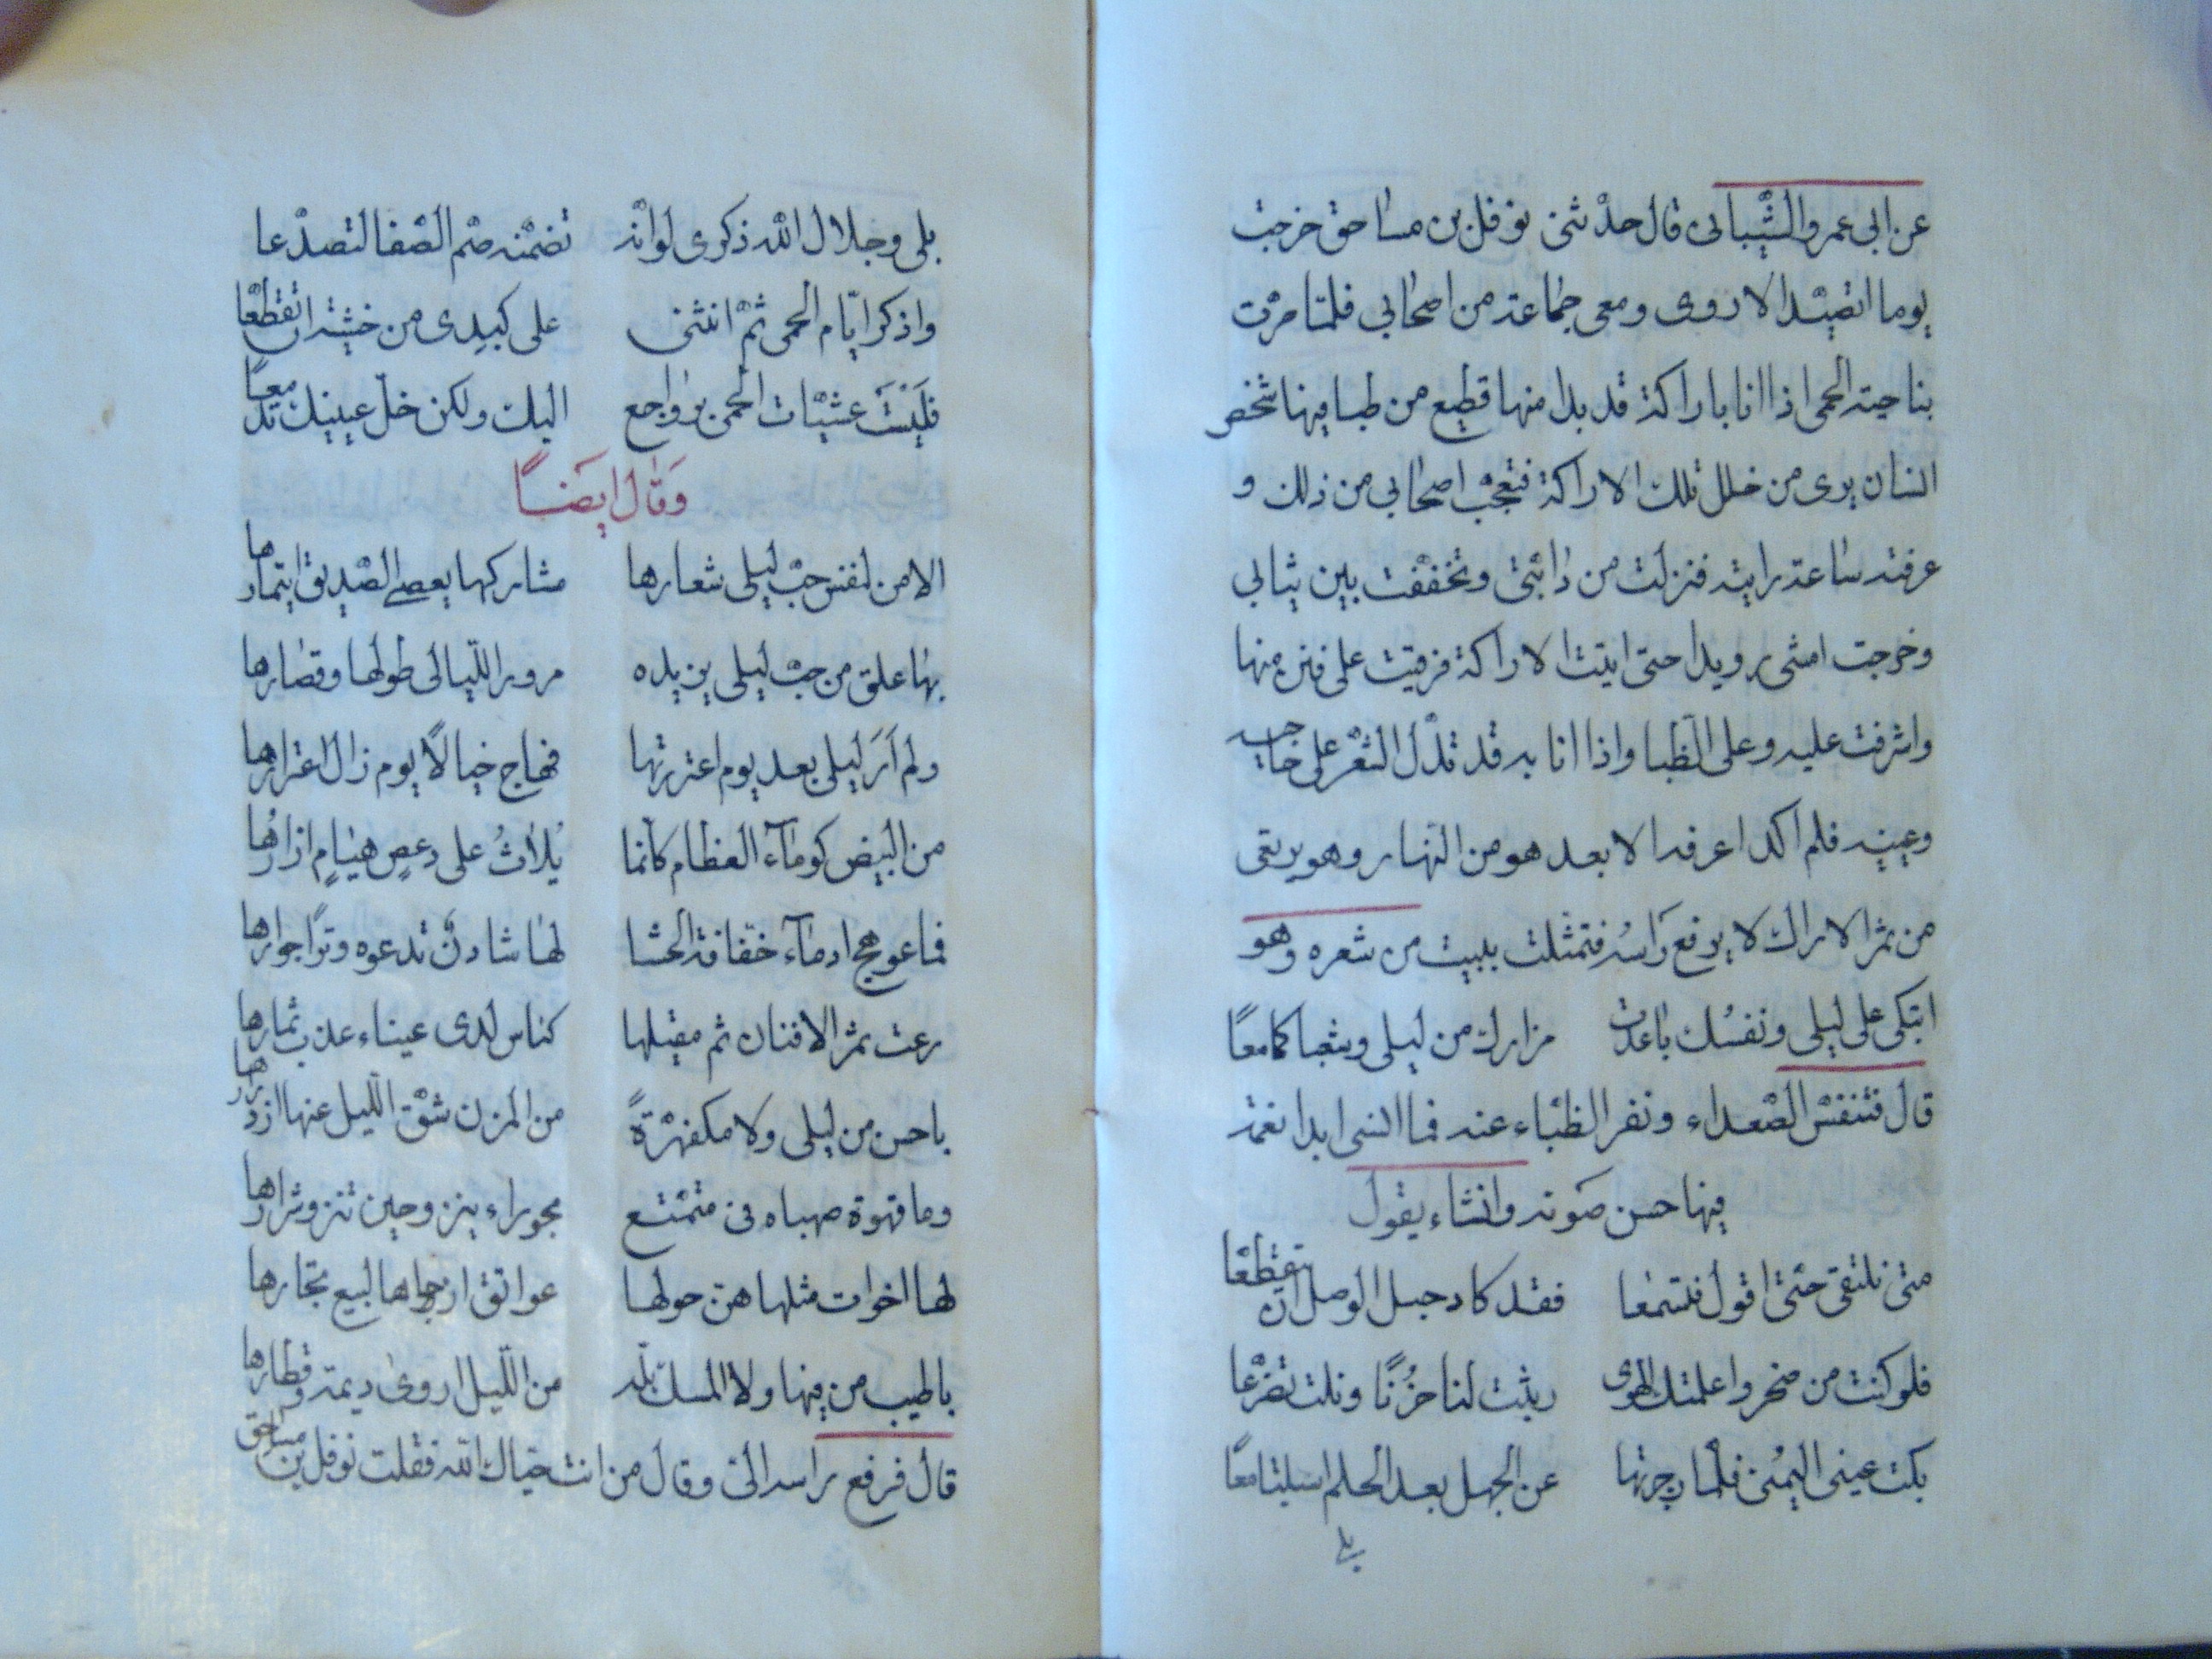 عن ابى عمرو الشّيبانى قال حدّثنى نوفل بن مساحق خرجت
يوما اتصيّد الاروى ومعى جماعة من اصحابي فلمّا مرّت
بناحية الحمى اذا انا باراكة قد بدا منها قطيع من ظبا فيها شخص
انسان يرى من خلل تلك الاراكة فتعجّب اصحابي من ذلك و
عرفته ساعة رايته فنزلت من دابّتى وتخففت بين ثيابي
وخرجت امشى رويدا حتى اتيت الاراكة فرقيت على فنن منها
واشرفت عليه وعلى الظبا واذا انا به قد تدلّ الشعر على حاجبيه
وعينيه فلم اكد اعرفه الا بعد هو من النّهار وهو يرتقى
من ثمر الاراك لا يرفع رَاسُه فتمثّلت ببيت من شعره وهو
اتبكى على ليلى ونفسُك باعدت مزارك من ليلى وشعبا كما معًا
قال فتنفّس الصّعداء ونفر الظبّاء عنه فما انسى ابدا نغمة
فيها حسن صَوته وانشاء يقول
متى نلتقى حتّى اقول فتسمعا فقد كاد حبل الوصل ان يتقطّعا
فلو كنت من صخر واعلمتك الهوى ريثت لنا حُزنًا ونلت تضرّعا
بكت عينى اليمُنى فلمّا زجرتها عن الجهل بعد الحلم اسبلتا معًا
بلى
بلى وجلال اللّه ذكرى لو انّه تضمّنه صّم الصّفا لتصدّعا
واذكر ايّام الحمى ثمّ انثنى على كبدى من خشية ان تقطّعا
فليَسَت عشيّات الحمى برواجع اليك ولكن خلّ عينيك تدمعًا
وَقال ايضًا
الا من لنفس حبّ ليلى شعارها مشاركها بعصى الصّديق ايتمارها
بها علق من حبّ ليلى يزيده مرور اللّيالى طولها وقصارها
ولم اَرَ ليلى بعد يوم اعتررتها فهاج خيالًا يوم زال اعترارها
من البيض كوماء العظام كانما يُلاثُ على دعصٍ هيامٍ ازارُها
فما عوهج ادماء خفّاقة الحشا لها شادنٌ تدعوه وترًا جوارها
رعت ثمر الافنان ثم مقيلها كناس لدى عيناء عذب ثمارها
باحسن من ليلى ولا مكفهرّةً من المزن شقّ اللّيل عنها ازدرارها
وما قهوة صهباء فى متمنّع بحوراء ينزو حين تنزو شرارها
لها اخوات مثلها هنّ حولها عواتق ارجاها لبيع تجّارها
باطيب من فيها ولا المسك بلّه من اللّيل اروى ديمة وقطارها
قال فرفع راسه الىّ وقال من انت حيّاك اللّه فقلت نوفل بن مساحق